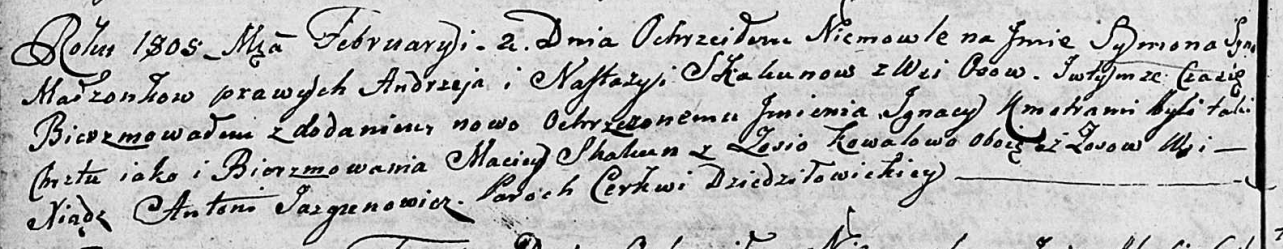 Roku 1808 Mca February. 2. Dnia Ochrzciłem Niemowle na Jmie Symona Syn
Małżonkow prawych Andrzeja i Nastazyi Skakunow z Wsi Osow. I w tymze Czasie
Bierzmowałem z dodaniem nowo Ochrzczonemu Jmienia Ignacy Kmotrami byli tak
Chrztu iako i Bierzmowania Maciey Skakun z Zosio Kowalowo oboie z Osow Wsi —
Niądz Antoni Jazgunowicz. Paroch Cerkwi Dziedziłowickiey